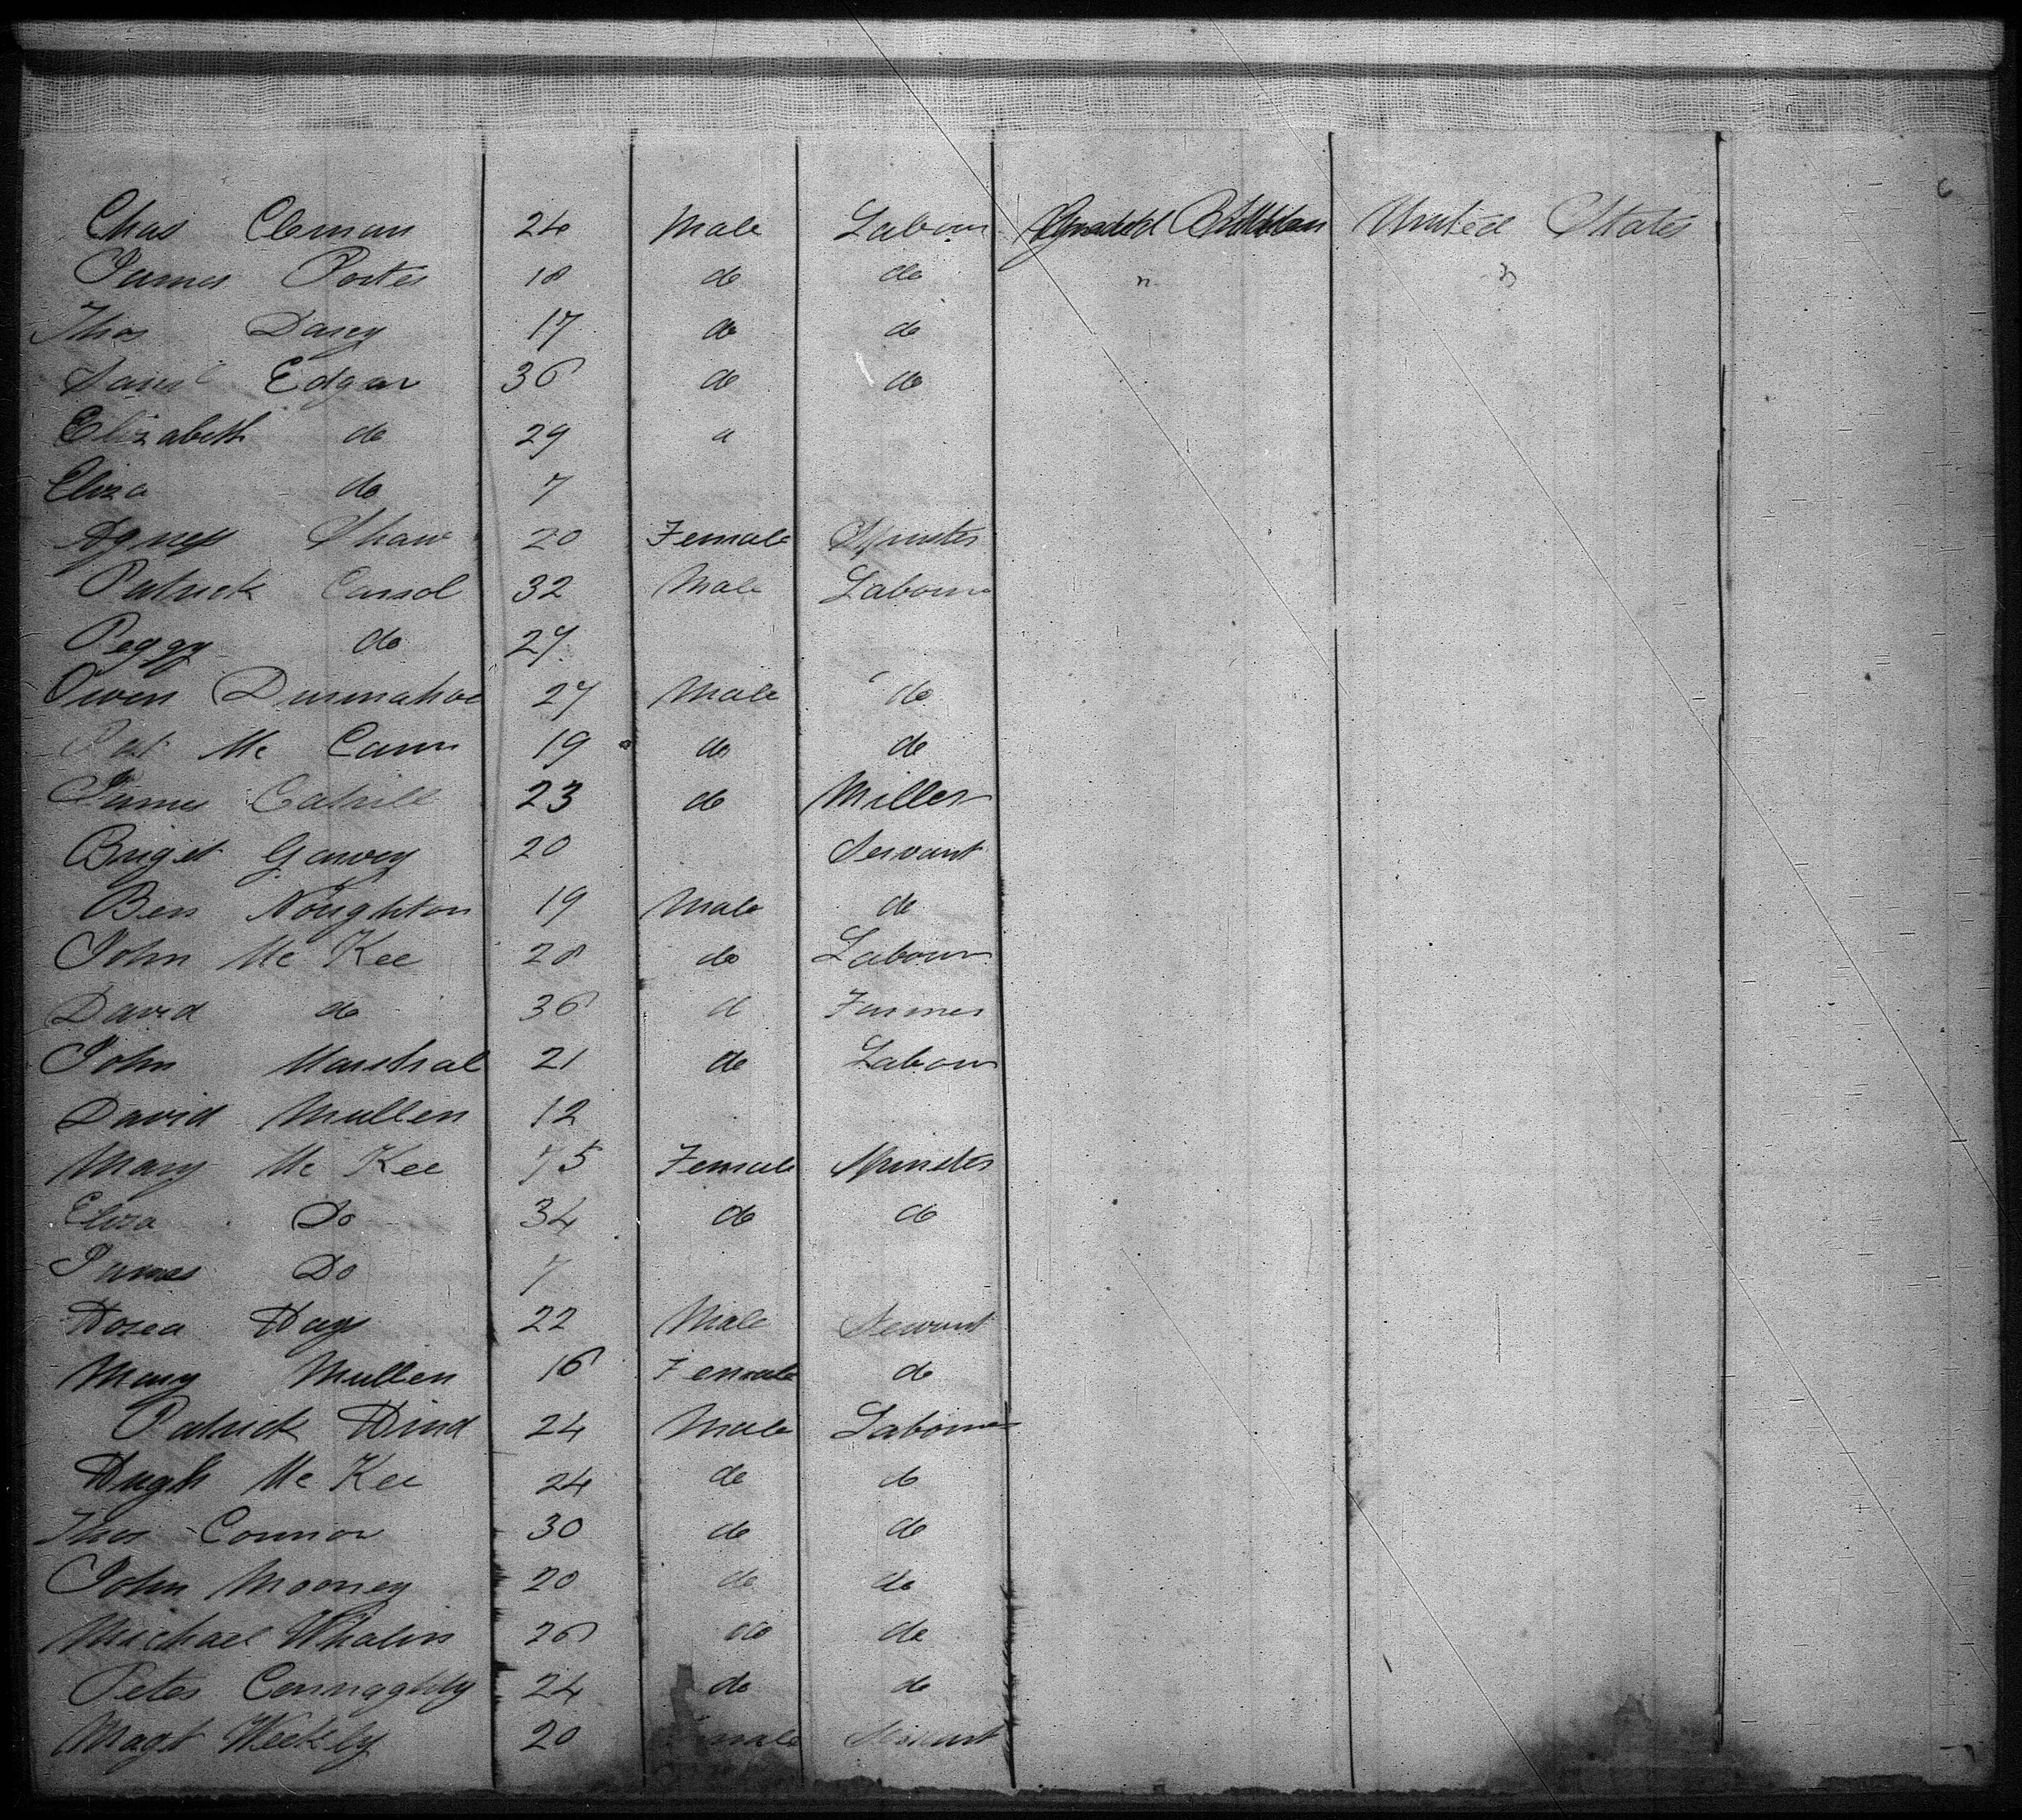 6
Chas Cleman 24 Male Labour United States
James Porter 18 do do "
Thos Darcy 17 do do
Saml Edgar 36 do do
Elizabeth do 29
Eliza do 7
Agness Shaw 20 Female Spinster
Patrick Carrol 32 Male Labour
Peggy do 27
Owen Dunnahoe 27 Male do
Pat Mc Cann 19 do do
James Cahill 23 do Miller
Briget Garvey 20 Servant
Ben Noughton 19 Male do
John Mc Kee 28 do Labour
David do 36 d Farmer
John Marshal 21 do Labour
David Mullen 12
Mary Mc Kee 75 Female Spinster
Eliza Do 34 do do
James Do 7
Hosea Hays 22 Male Servant
Mary Mullen 16 Female do
Patrick Hind 24 Male Labourer
Hugh Mc Kee 24 do do
Thos Connor 30 do do
John Mooney 20 do do
Michael Whalin 26 do do
Peter Connaghty 24 do do
Magt Weekly 20 Female Servant